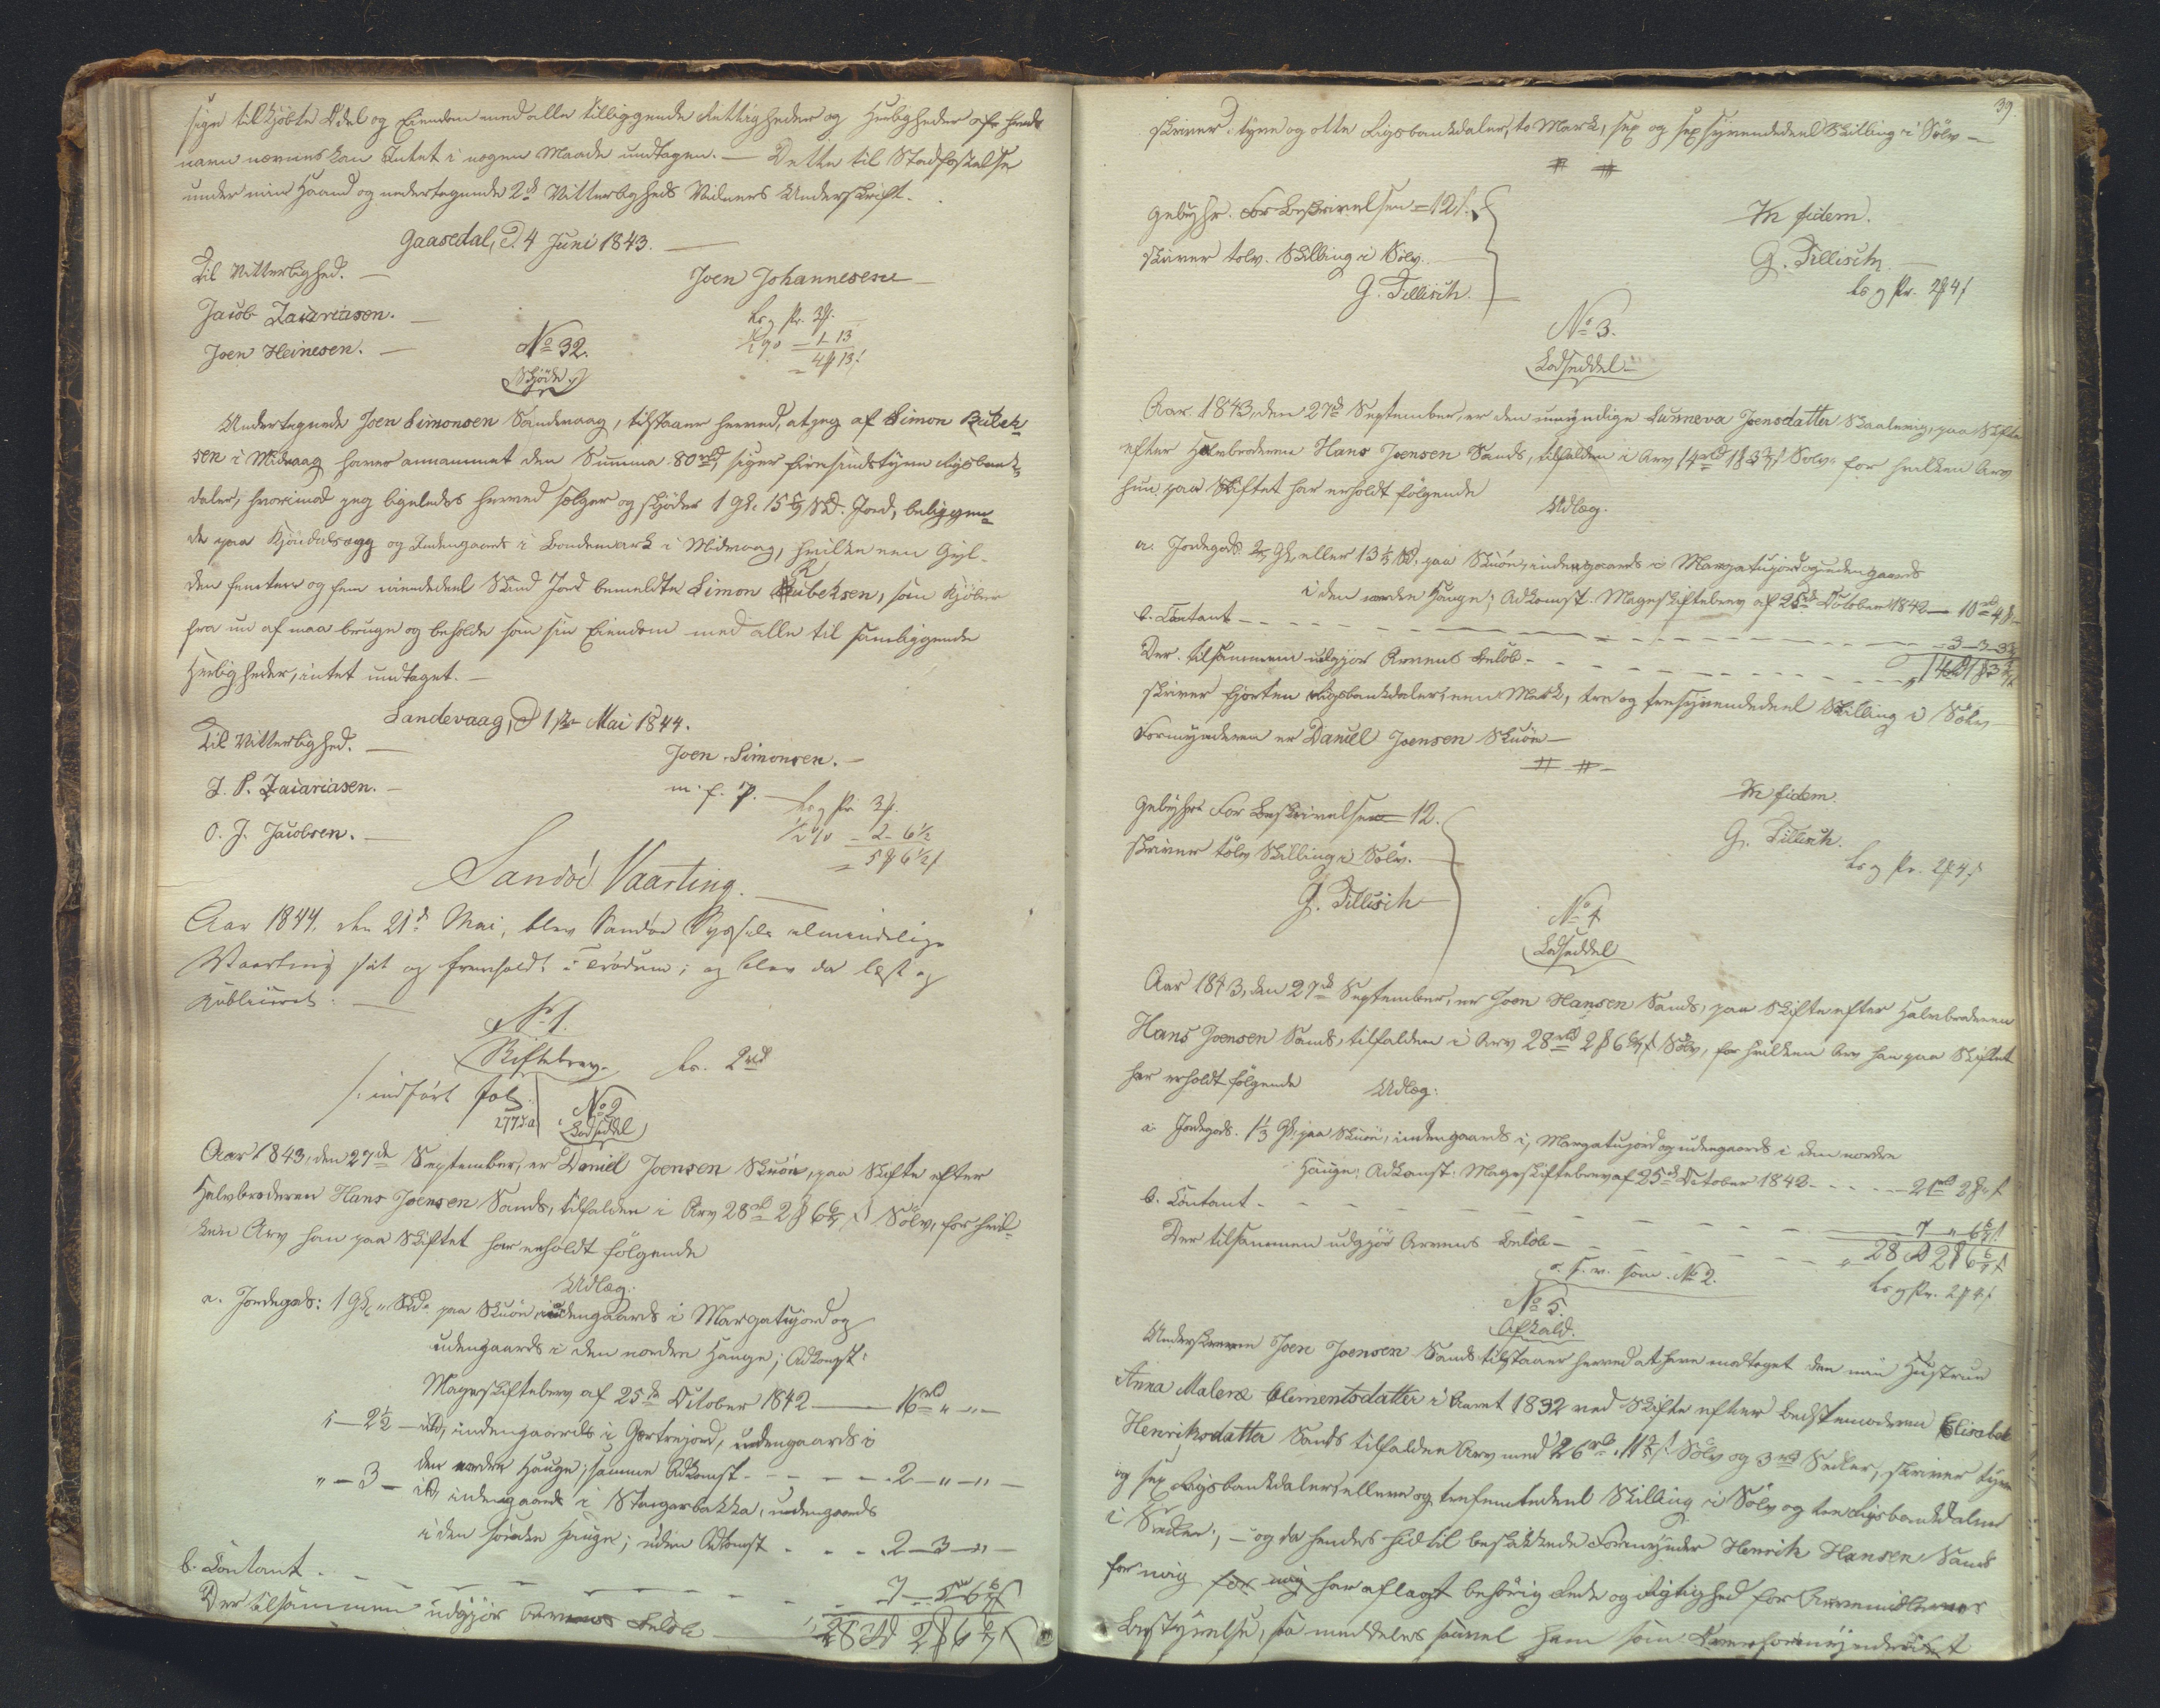 sige tilkjøbte Odel og Eiendom med alle tilliggende Rettigheder og Herligheder af hvad
navn nævnes kan Intet i nogen Maade undtagen. — Dette til Stadfæstelse
under min Haand og undertegnede 2de Vitterligheds Vidners Underskrift.
Gaasedal, d. 4 Juni 1843. —
Til Vitterlighed. —
Joen Johannesen —
Jacob Zacariasen. —
Joen Heinesen. —
No 32.
Skjøde.
Undertegnede Joen Simonsen Sandevaag, tilstaaer herved, at jeg af Simon Rubek-
sen i Midvaag haver annammet den Summa 80 rbd, siger firesindstyve Rigsbank-
daler, hvorimod jeg ligeledes herved sælger og skjøder 1 Gl. 15 5/9 Skd. Jord, beliggen-
de paa Kjóudalsegg og Indengaards i Bondemark i Midvaag, hvilke een Gyl-
den femten og fem niendedeel Skind Jord bemeldte Simon Rubeksen, som Kjøber
fra nu af maa bruge og beholde som sin Eiendom med alle til samliggende
Herligheder, intet undtaget. —
Sandevaag, d. 1ste Mai 1844.
Til Vitterlighed. —
Joen Simonsen. —
m. f. P.
J. P. Zacariasen. —
O. J. Jacobsen. —
Sandöe Vaarting.
Aar 1844. den 21de Mai, blev Sandøe Syssels almindelige
Vaarting sat og fremholdt i Trödum; og blev da læst og
publiceret: —
No 1.
Skiftebrev.
/: indført fol.
277a
No 2
Lodseddel
Aar 1843, den 27de September, er Daniel Joensen Skuöe, paa Skifte efter
Halvbroderen Hans Joensen Sands, tilfalden i Arv 28 rbd 2 6 6/7 Sølv, for hvil-
ken Arv han paa Skiftet har erholdt følgende
Udlæg.
a. Jordegods: 1 Gl. " Skd. paa Skuöe, indengaards i Margatujord og
udengaards i den nordre Hauge; Adkomst:
Mageskiftebrev af 25de October 1842 — 16 rbd " — " —
" — 2 1/2 — ditto, indengaards i Gertrujord, udengaards i
den nordre Hauge; samme Adkomst - - - 2 — " — " —
" — 3 — ditto indengaards i Stougarbakka, udengaards
i den søndre Hauge; uden Adkomst - - - 2 — 3 — " —
b. Contant - - -
Der tilsammen udgjør Arvens Beløb — 28 rbd 2 6 6/7
39.
skriver: tyve og otte Rigsbankdaler, to Mark, sex og sex syvendedeel Skilling i Sølv —
Gebyhr. For Beskrivelsen = 12
skriver tolv. Skilling i Sølv.
G. Tillisch.
In fidem.
G. Tillisch.
No 3.
Lodseddel
Aar 1843, den 27de September, er den umyndige Sunneva Joensdatter Skaalevig, paa Skifte
efter Halvbroderen Hans Joensen Sands, tilfalden i Arv 14 rbd 1 3 3/7 Sølv, for hvilken Arv
hun paa Skiftet har erholdt følgende
Udlæg.
a. Jordegods: 2/3 Gl. eller 13 1/3 Skd. paa Skuöe, indengaards i Margatujord og udengaards
i den nordre Hauge; Adkomst: Mageskiftebrev af 25de October 1842 — 10 rbd 4
b. Contant - - - 3 — 3 — 3 3/7
Der tilsammen udgjør Arvens Beløb - - - 14 rbd 1 3 3/7
skriver fjorten Rigsbankdaler, een Mark, tre og tresyvendedeel Skilling i Sølv
Formynderen er Daniel Joensen Skuöe —
Gebyhr For Beskrivelsen = 12.
skriver tolv Skilling i Sølv. —
G. Tillisch
In fidem.
G. Tillisch.
No 4
Lodseddel
Aar 1843, den 27de September, er Joen Hansen Sands, paa Skifte efter Halvbroderen
Hans Joensen Sands, tilfalden i Arv 28 rbd 2 6 6/7 Sølv, for hvilken Arv han paa Skiftet
har erholdt følgende
Udlæg:
a. Jordegods. 1 1/3 Gl. paa Skuöe, indengaards i, Margatujord og udengaards i den nordre
Hauge; Adkomst: Mageskiftebrev af 25de October 1842 - - - 21 rbd 2
b. Contant - - - 7 " 6 6/7
Der tilsammen udgjør Arvens Beløb — 28 rbd 2 6 6/7
o. s. v. som No 2.
No 5.
Afkald.
Underskrevne Joen Joensen Sands tilstaaer herved at have modtaget den min Hustrue
Anna Malena Clementsdatter i Aaret 1832 ved Skifte efter Bedstemoderen Elisabet
Henriksdatter Sands tilfalden Arv med 26 rbd 11 3/5 Sølv og 3 rbd Sedler, skriver tyve
og sex Rigsbankdaler, elleve og trefemtedeel Skilling i Sølv og tre Rigsbankdaler
i Sedler; — og da hendes hidtil beskikkede Formynder Henrik Hansen Sands
for mig for mig har aflagt behørig Rede og Rigtighed for Arvemidlernes
Bestyrelse, saa meddeles saavel ham som Overformynderiet